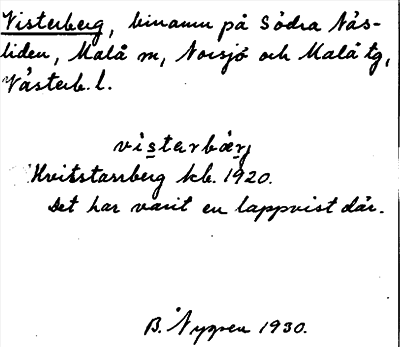 Visterberg, binamn på Södra Näs-
liden, Malå sn, Norsjö och Malå tg,
Västerb. l.
vistarbærj
Hvitstarrberg kb. 1920.
Det har varit en lappvist där.
B. Nygren 1930.